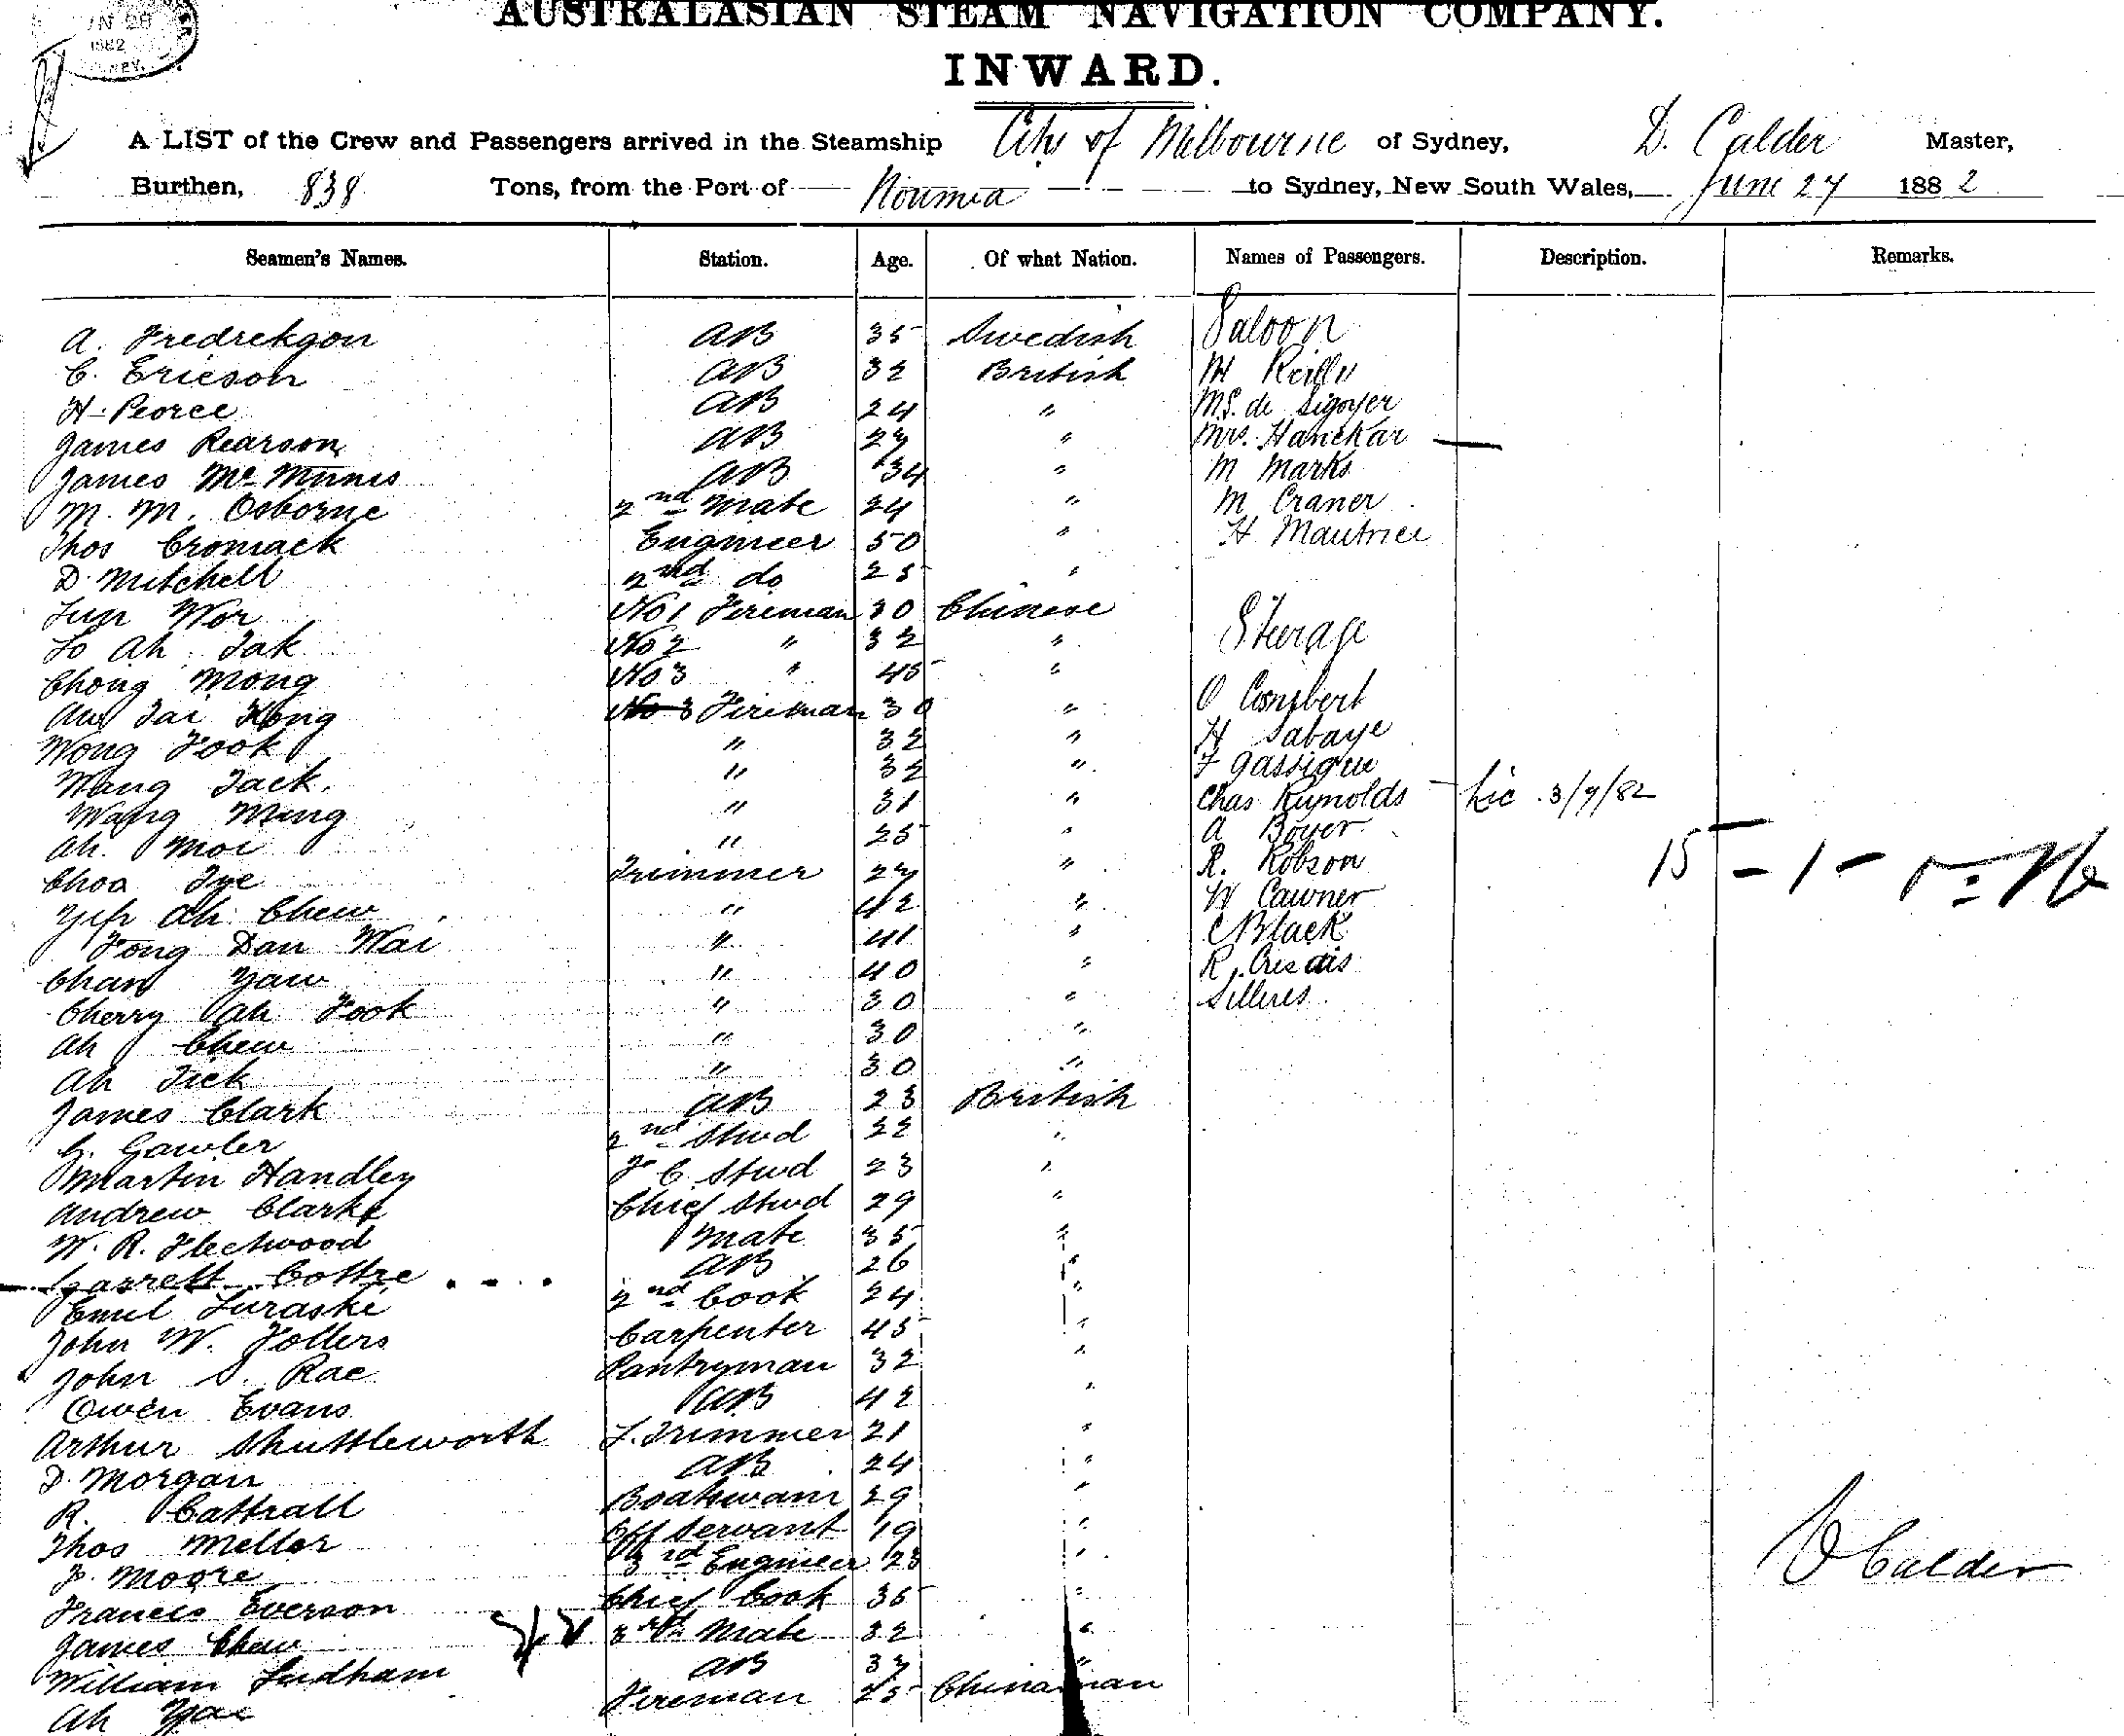 AUSTRALASIAN STEAM NAVIGATION COMPANY.
INWARD.
1882
A LIST of the Crew and Passengers arrived in the Steamship City of Melbourne of Sydney, D. Calder Master,
Burthen, 838 Tons, from the Port of Noumea to Sydney, New South Wales, June 27 1882
Seamen's Names. Station. Age. Of what Nation. Names of Passengers. Description. Remarks.
Saloon
A. Fredrekson AB 35 Swedish
C. Ericson AB 32 British M Reilly
H. Peorce AB 24 " MS. de Sigoyer
James Pearson AB 27 " Mrs. Hanckar
James Mc Minnis AB 34 " M Marks
M. M. Osborne 2nd Mate 24 " M Craner
Thos Cromack Engineer 50 " H Mautrier
D. Mitchell 2nd do 25 "
Fun Wor No 1 Fireman 30 Chinese Sterage
Lo Ah Tak No 2 " 32 "
Chong Mong No 3 " 45 "
Au Tai Kong No 3 Fireman 30 " O
Wong Fook " 32 " H Sabaye
Wang Jack. " 32 " F Gassigue
Wang Ming " 31 " Chas Rynolds Lic. 3/7/82
Ah. Moi " 25 " A Boyer
Choa Tye Trimmer 27 " R. Robson 15 - 1 -
Yip Ah Chew " 42 " W Cawner
Fong Dan Wai " 41 " C Black
Chan Yaw " 40 " R.
Cherry Ah Fook " 30 " Sillires
Ah Chew " 30 "
Ah Tick " 30 "
James Clark AB 23 British
G. Gawler 2nd Stwd 22 "
Martin Handley F C. Stwd 23 "
Andrew Clarke Chief Stwd 29 "
W. R. Fleetwood Mate 35 "
Garrett Cottre AB 26 "
Emil Luraske 2nd Cook 24 "
John W. Follers Carpenter 45 "
John S. Rae Pantryman 32 "
Owen Evans AB 42 "
Arthur Shuttleworth L. Trimmer 21 "
D. Morgan AB 24 "
R. Cattrall Boatswain 29 "
Thos Mellor Off Servant 19 "
J. Moore 3rd Engineer 23 "
Francis Everson Chief Cook 35 " D Calder
James Chew 3rd Mate 32 "
William Ludham AB 37 "
Ah Yae Fireman 25 Chinaman